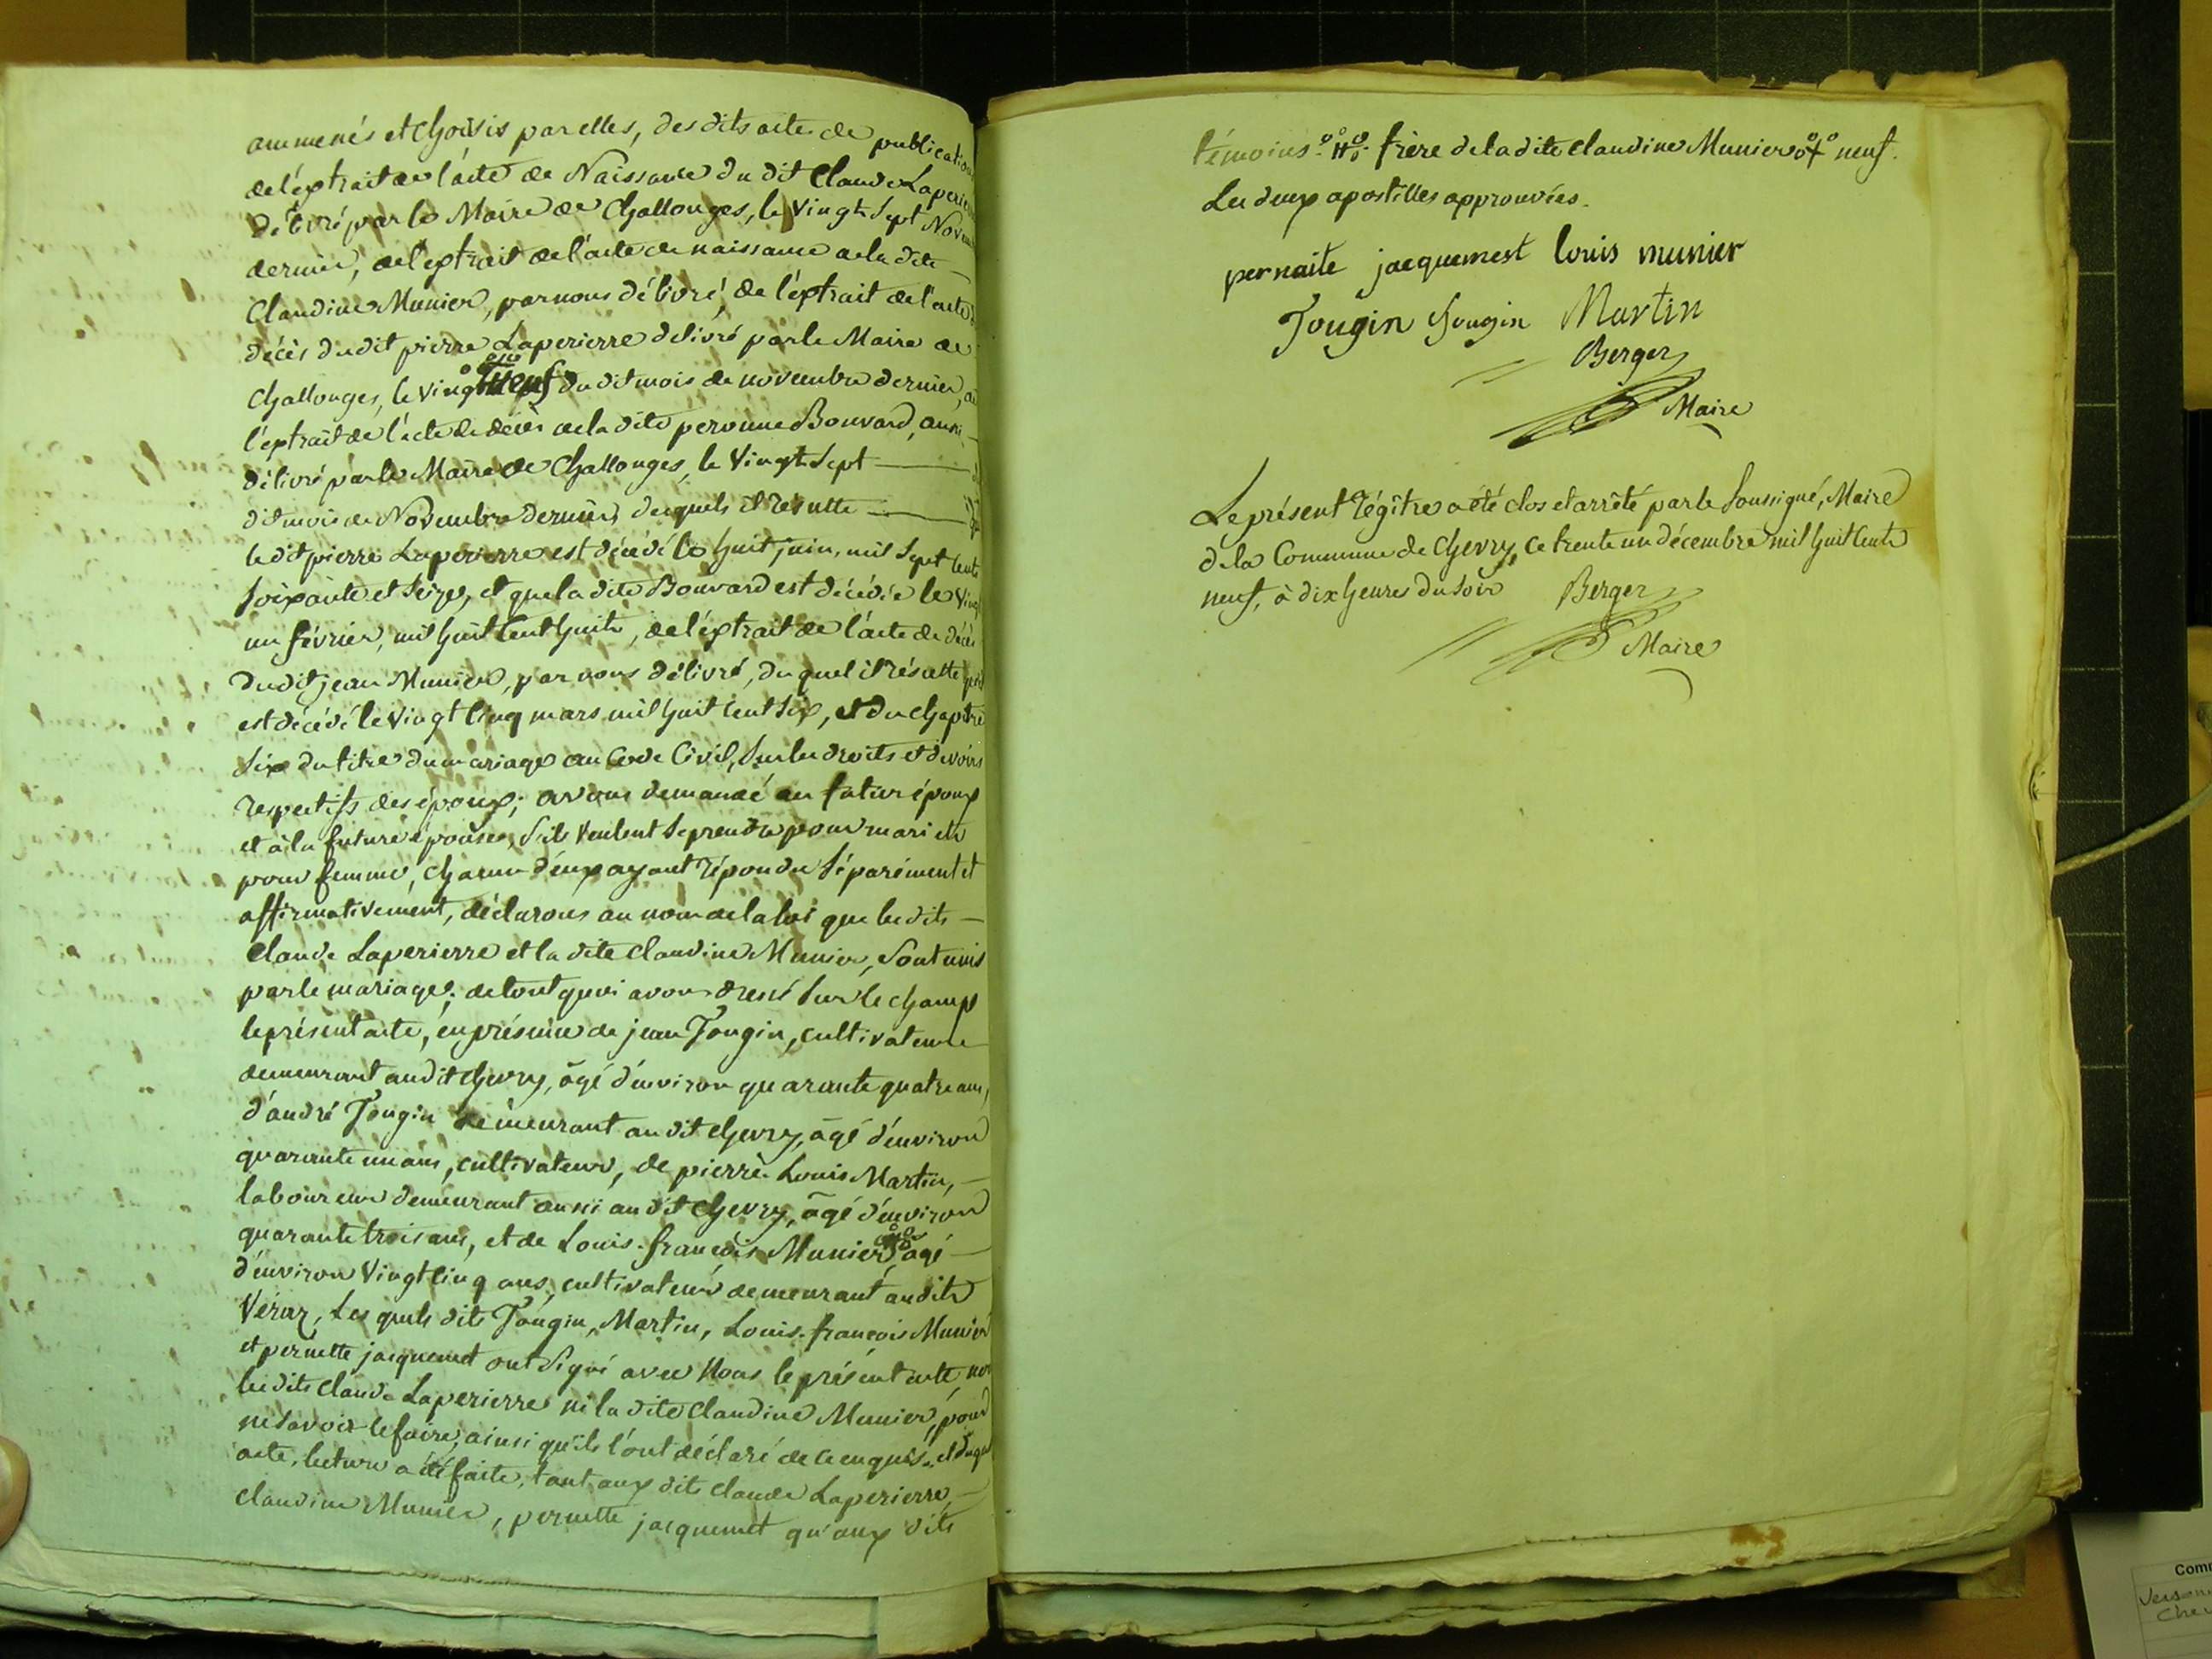 ammenés et choisis par elles, des dits actes de publication
de l'éxtrait de l'acte de Naissance du dit Claude Laperierre
délivré par le Maire de Challonges, le Vingt Sept Novembre
dernier, de l'extrait de l'acte de naissance de la dite —
Claudine Munier, par nous délivré, de l'éxtrait de l'acte de
décès du dit pierre Laperierre délivré par le Maire de
Challonges, le vingt neuf du dit mois de novembre dernier, de
l'extrait de l'acte de décès de la dite peronne Bouvard, aussi
délivré par le Maire de Challonges, le Vingt Sept —
dit mois de Novembre dernier, desquels il résulte —
le dit pierre Laperierre est décédé le huit juin, mil Sept Cent
Soixante et Seize, et que la dite Bouvard est décédée le Vingt
un février, mil huit Cent huit, de l'éxtrait de l'acte de décès
du dit jean Munier, par nous délivré, du quel il résulte qu'il
est décédé le Vingt Cinq mars mil huit Cent Six, et du chapitre
Six du titre du mariage au Code Civil, Sur les droits et devoirs
respectifs des époux; avons demandé au futur époux
et à la future épouse, S'ils Veulent Se prendre pour mari et
pour femme, chacun d'eux ayant répondu Séparément et
affirmativement, déclarons au nom de la loi que les dits —
Claude Laperierre et la dite Claudine Munier, Sont unis
par le mariage; de tout quoi avons dressé Sur le champ
le présent acte, en présence de jean Tougin, cultivateur
demeurant au dit Chevry, âgé d'environ quarante quatre ans,
d'andré Tougin demeurant au dit Chevry, âgé d'environ
quarante un ans, cultivateur, de pierre Louis Martin, —
laboureur demeurant aussi au dit Chevry, âgé d'environ
quarante trois ans, et de Louis-françois Munier, âgé —
d'environ Vingt Cinq ans, cultivateur demeurant au dit
Véraz, Les quels dits Tougin, Martin, Louis-françois Munier
et pernette jacquemet ont Signé avec Nous le présent acte, non
les dits Claude Laperierre ni la dite Claudine Munier, pour
ne Savoir le faire, ainsi qu'ils l'ont déclaré de ce enquis. et du quel
acte, lecture a été faite, tant aux dits Claude Laperierre, —
Claudine Munier, pernette jacquemet qu'aux dits
témoins. frère de la dite Claudine Munier neuf.
Les deux apostilles approuvées.
pernaite jacquemest louis munier
Tougin Tougin Martin
Berger
Maire
Le présent régître a été clos et arrêté par le Soussigné, Maire
de la Commune de Chevry, ce trente un décembre mil huit Cent
neuf, à dix heures du soir Berger
Maire